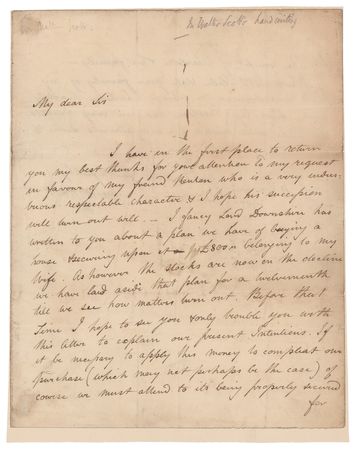 Sr Walter Scotts hand writing
My dear Sir
I have in the first place to return
you my best thanks for your attention to my request
in favour of my friend who is a very indus-
trious respectable character & I hope his succession
will turn out well — I fancy Lord Downshire has
written to you about a plan we have of buying a
house & securing upon it £800 belonging to my
Wife. As however the stocks are now on the decline
we have laid aside that plan for a twelvemonth
till we see how matters turn out. Before that
Time I hope to see you & only trouble you with
this letter to explain our present Intentions. If
it be necessary to apply this money to compleat our
purchase (which may not perhaps be the case) of
course we must attend to its being properly secured
for